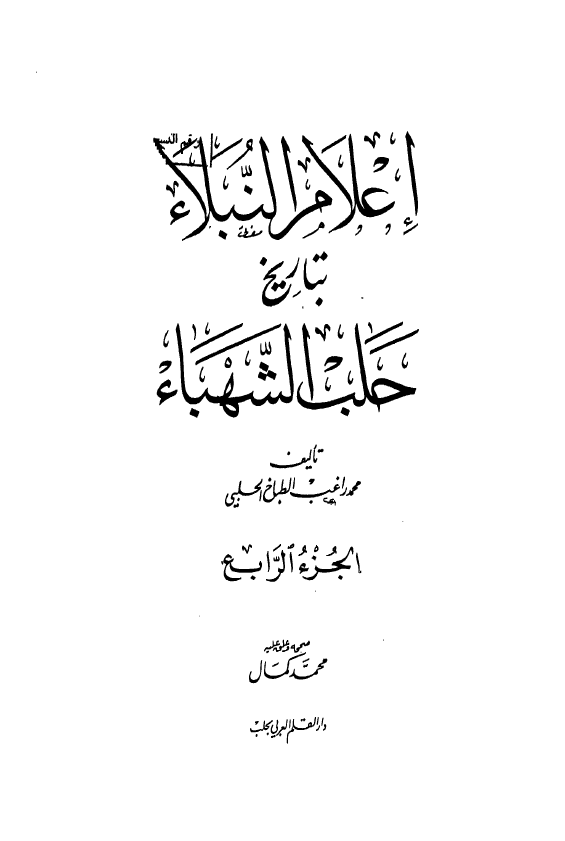 إِعْلَامُ النُّبَلَاءِ
بتاريخ
حَلَبَ الشَّهْبَاءِ
تأليف
محمد راغب الطباخ الحلبي
الجُزْءُ الرَّابِع
صححه وعلق عليه
محمَّد كمَال
دار القلم العربي بحلب